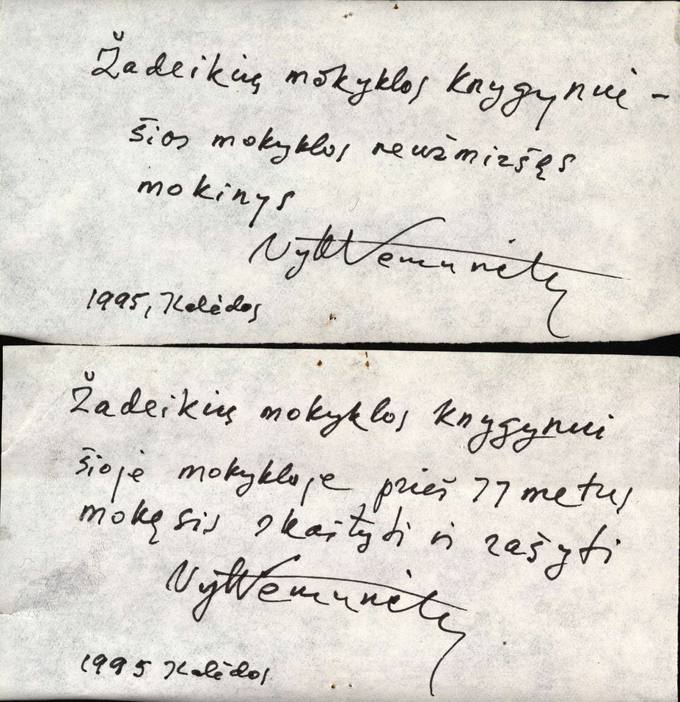 Žadeikių mokyklos knygynui –
šios mokyklos neužmiršęs
mokinys
Vyt Nemunėlis
1995, Kalėdos
Žadeikių mokyklos knygynui
šioje mokykloje prieš 77 metus
mokęsis skaityti ir rašyti
Vyt Nemunėlis
1995 Kalėdos